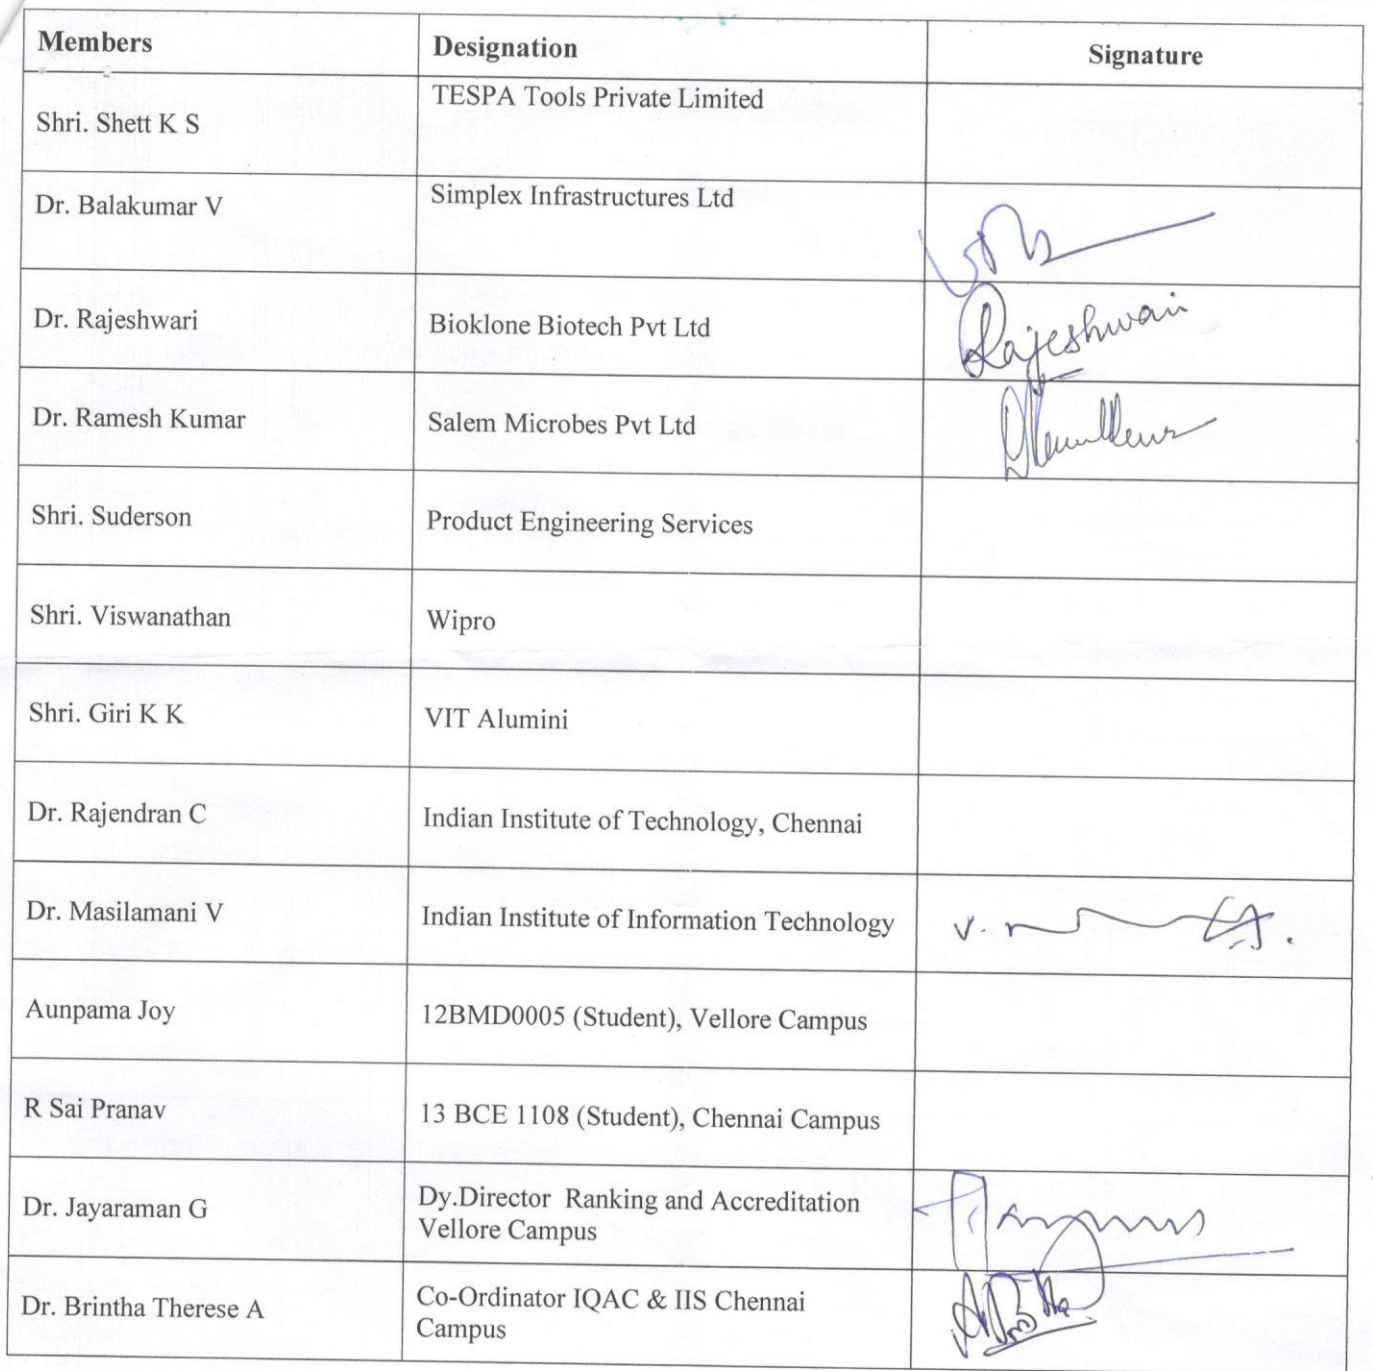 Members Designation Signature
Shri. Shett K S TESPA Tools Private Limited
Dr. Balakumar V Simplex Infrastructures Ltd
Dr. Rajeshwari Bioklone Biotech Pvt Ltd Rajeshwari
Dr. Ramesh Kumar Salem Microbes Pvt Ltd
Shri. Suderson Product Engineering Services
Shri. Viswanathan Wipro
Shri. Giri K K VIT Alumini
Dr. Rajendran C Indian Institute of Technology, Chennai
Dr. Masilamani V Indian Institute of Information Technology
Aunpama Joy 12BMD0005 (Student), Vellore Campus
R Sai Pranav 13 BCE 1108 (Student), Chennai Campus
Dr. Jayaraman G Dy.Director Ranking and Accreditation
Vellore Campus
Dr. Brintha Therese A Co-Ordinator IQAC & IIS Chennai
Campus